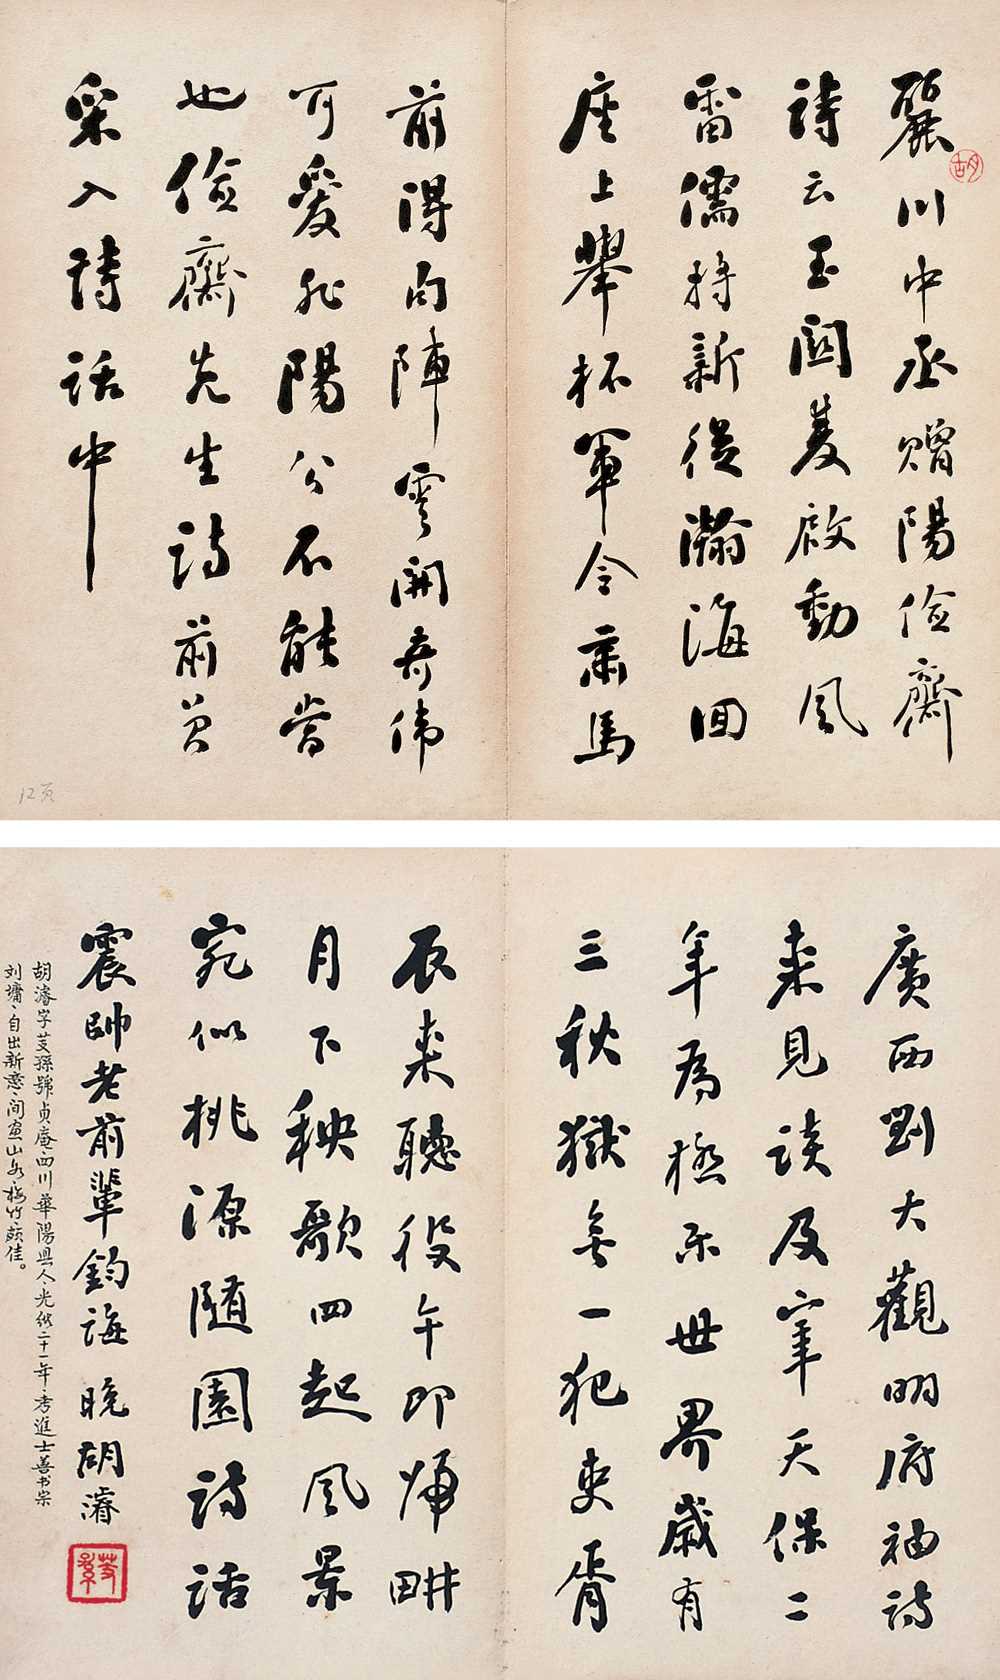 麗川中丞贈陽儉齋
詩云玉關夔啟動風
雷儒將新從瀚海回
座上舉杯軍令肅馬
前得句陣雲開奇偉
可愛非陽公不能當
也儉齋先生詩前異
采入詩話中
胡
12页
廣西劉大觀明府袖詩
来見談及宰天保二
年為極樂世界歲有
三秋獄無一犯吏胥
辰来聽役午即歸畊
月下秧歌四起風景
宛似桃源隨園詩話
震帥老前輩鈞誨 晚胡濬
胡濬字芰孫號貞庵、四川華陽县人、光绪二十一年、考進士善书宗
刘墉、自出新意、间画山水、梅竹、颇佳。
芰孫